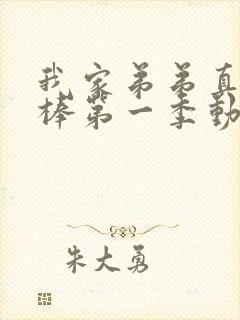 我家弟弟真
棒第一季动
朱大勇